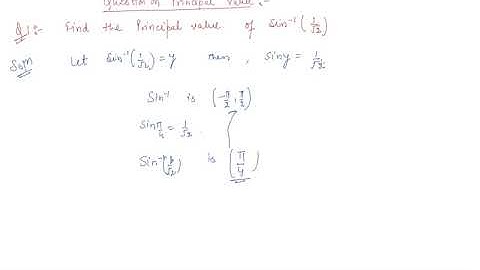 Question on Principal Value :-
Q.1:- Find the Principal value of Sin⁻¹(1/√2)
Solⁿ Let Sin⁻¹(1/√2) = y then, Siny = 1/√2
Sin⁻¹ is (-π/2, π/2)
Sin π/4 = 1/√2
Sin⁻¹(1/√2) is (π/4)